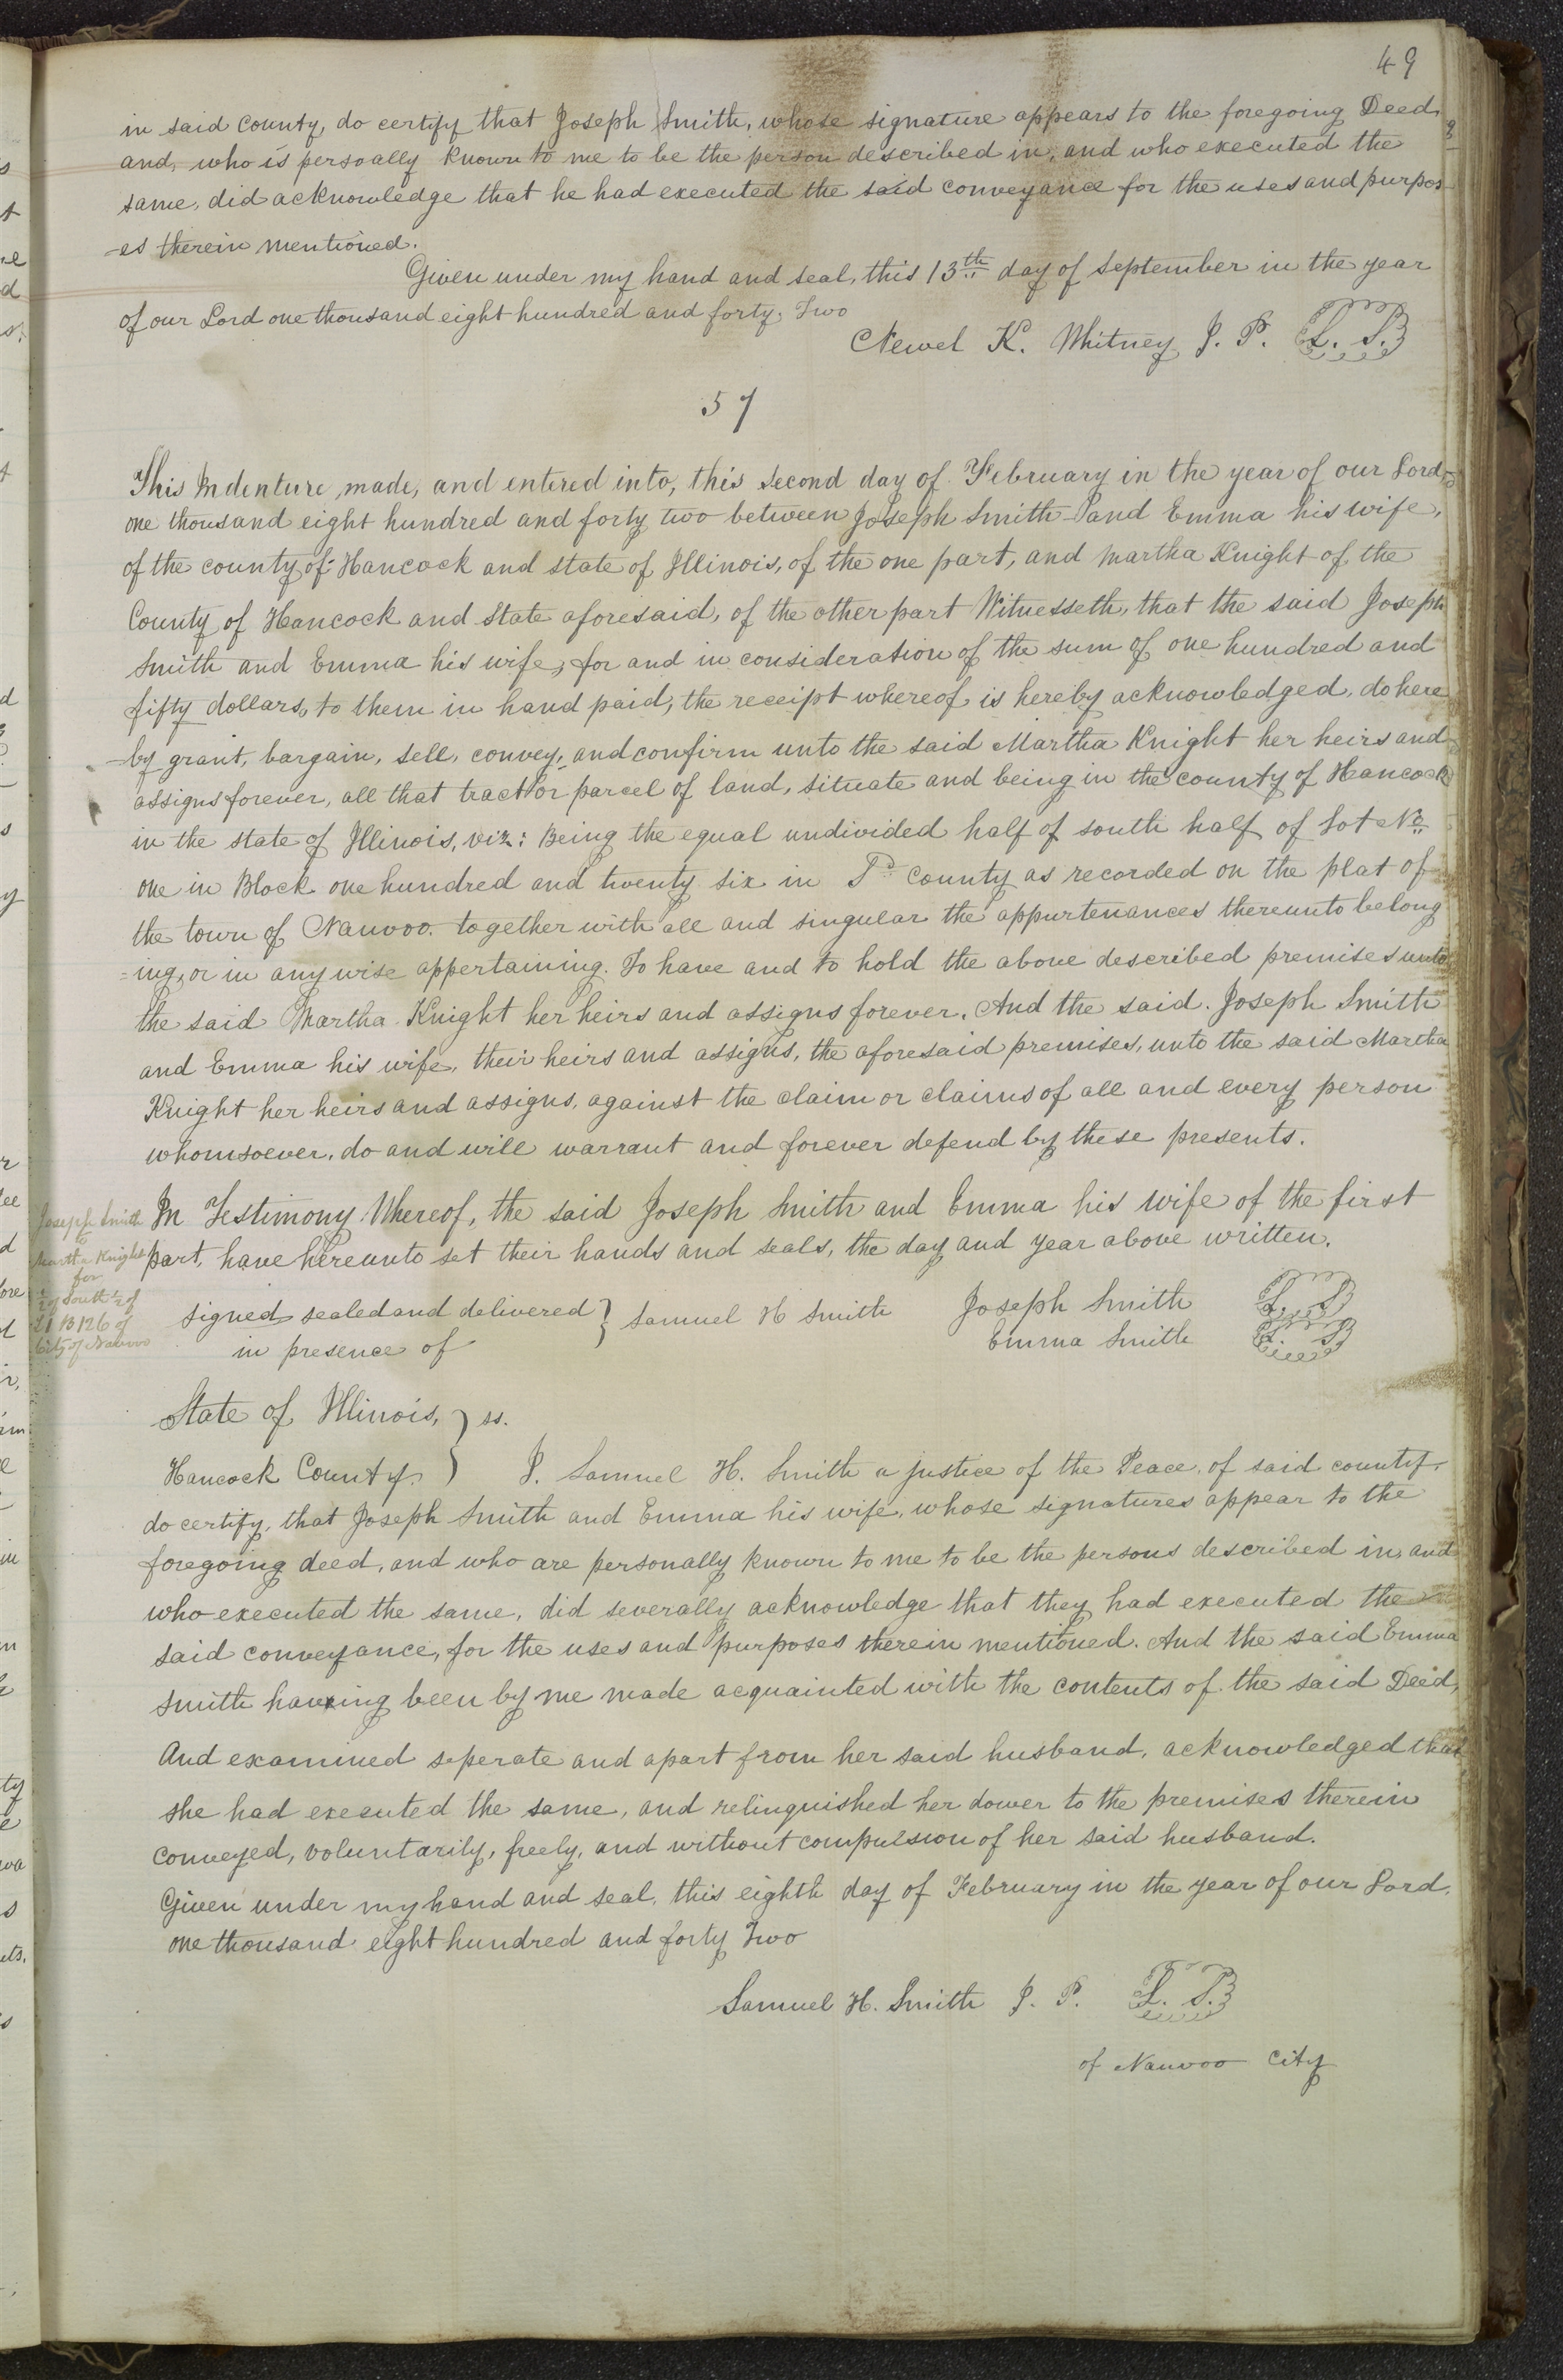 49
in said County, do certify that Joseph Smith, whose signature appears to the foregoing Deed
and, who is persoally known to me to be the person described in, and who executed the
same, did acknowledge that he had executed the said conveyance for the uses and purpos
-es therein mentioned.
Given under my hand and seal, this 13th day of September in the year
of our Lord one thousand eight hundred and forty, Two
Newel K. Whitney J. P. L. S.
57
This Indenture, made, and entered into, this second day of February in the year of our Lord
one thousand eight hundred and forty two between Joseph Smith and Emma his wife,
of the county of Hancock and state of Illinois, of the one part, and Martha Knight of the
County of Hancock and State aforesaid, of the other part Witnesseth, that the said Joseph
Smith and Emma his wife, for and in consideration of the sum of one hundred and
fifty dollars, to them in hand paid, the receipt whereof is hereby acknowledged, do here
-by grant, bargain, sell, convey, and confirm unto the said Martha Knight her heirs and
assigns forever, all that tract or parcel of land, situate and being in the county of Hancock
in the state of Illinois, viz: Being the equal undivided half of south half of Lot No
one in Block one hundred and twenty six in Sd County as recorded on the plat of
the town of Nauvoo. together with all and singular the appurtenances thereunto belong
=ing, or in any wise appertaining. To have and to hold the above described premises unto
the said Martha Knight her heirs and assigns forever. And the said Joseph Smith
and Emma his wife, their heirs and assigns, the aforesaid premises, unto the said Martha
Knight her heirs and assigns, against the claim or claims of all and every person
whomsoever, do and will warrant and forever defend by these presents.
In Testimony Whereof, the said Joseph Smith and Emma his wife of the first
part, have hereunto set their hands and seals, the day and year above written.
Joseph Smith
to
Martha Knight
for
1/2 of South 1/2 of
L 1 B 126 of
City of Nauvoo
signed sealed and delivered } Samuel H Smith Joseph Smith L. S
in presence of Emma Smith L. S
State of Illinois, } ss.
Hancock County. } I. Samuel H. Smith a justice of the Peace, of said county.
do certify, that Joseph Smith and Emma his wife, whose signatures appear to the
foregoing deed, and who are personally known to me to be the persons described in, and
who executed the same, did severally acknowledge that they had executed the
said conveyance, for the uses and purposes therein mentioned. And the said Emma
Smith having been by me made acquainted with the contents of the said Deed,
And examined seperate and apart from her said husband, acknowledged that
she had executed the same, and relinquished her dower to the premises therein
conveyed, voluntarily, freely, and without compulsion of her said husband.
Given under my hand and seal, this eighth day of February in the year of our Lord,
one thousand eight hundred and forty Two
Samuel H. Smith J. P. L. S.
of Nauvoo City